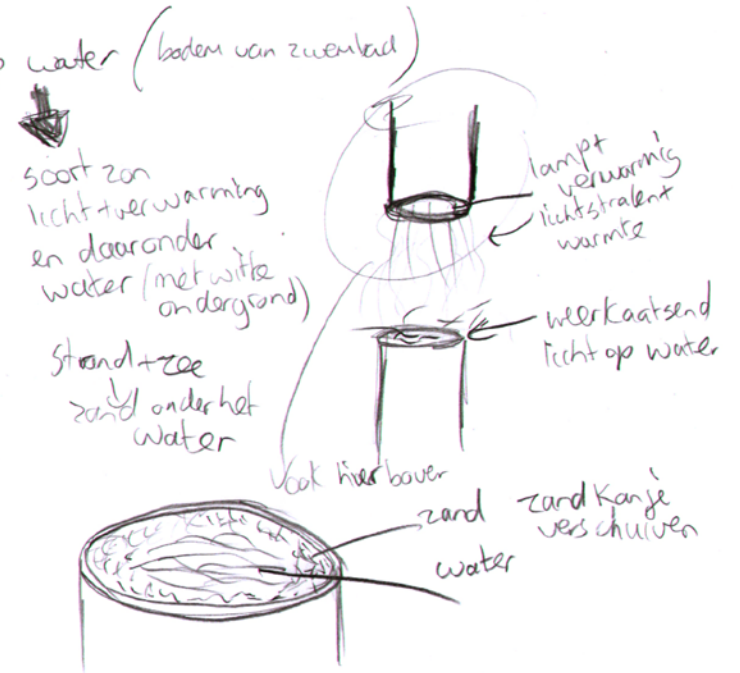 water (bodem van zwembad)
soort zon
licht+verwarming
en daaronder
water (met witte
ondergrond)
strand+zee
zand onder het
water
lamp+
verwarmig
lichtstralen+
warmte
weerkaatsend
licht op water
ook hierboven
zand
water
zand kan je
verschuiven